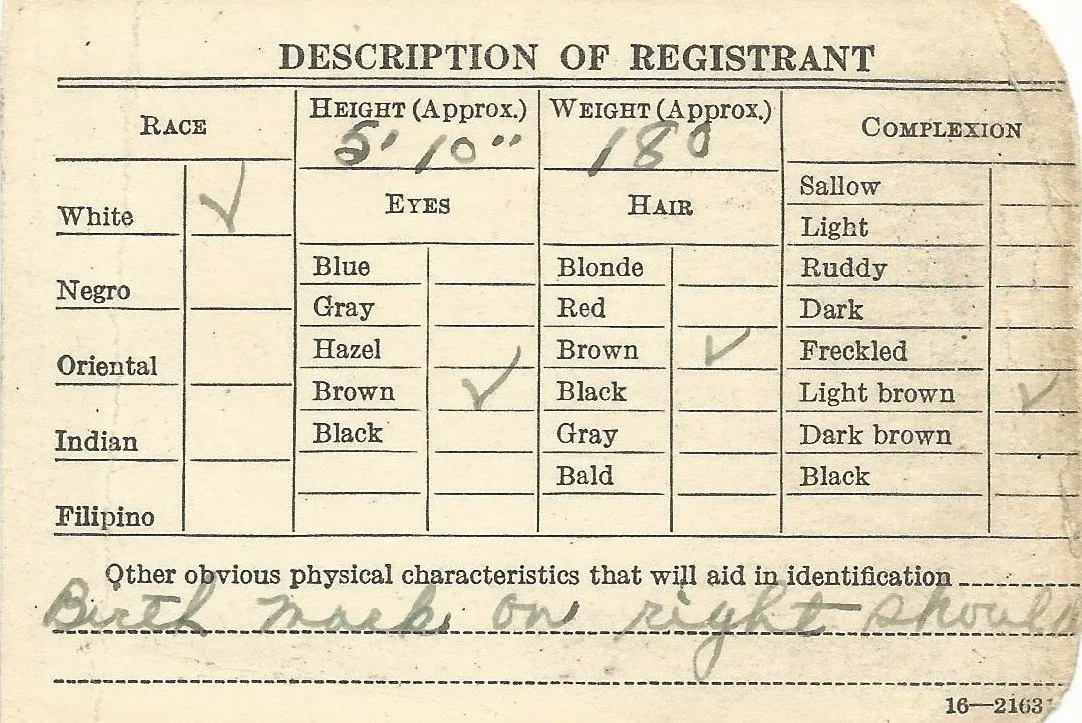 DESCRIPTION OF REGISTRANT
RACE
HEIGHT (Approx.)
5' 10"
WEIGHT (Approx.)
180
COMPLEXION
White ✓
Negro
Oriental
Indian
Filipino
EYES
Blue
Gray
Hazel
Brown ✓
Black
HAIR
Blonde
Red
Brown ✓
Black
Gray
Bald
Sallow
Light
Ruddy
Dark
Freckled
Light brown ✓
Dark brown
Black
Other obvious physical characteristics that will aid in identification
Birth mark on right
16—2163